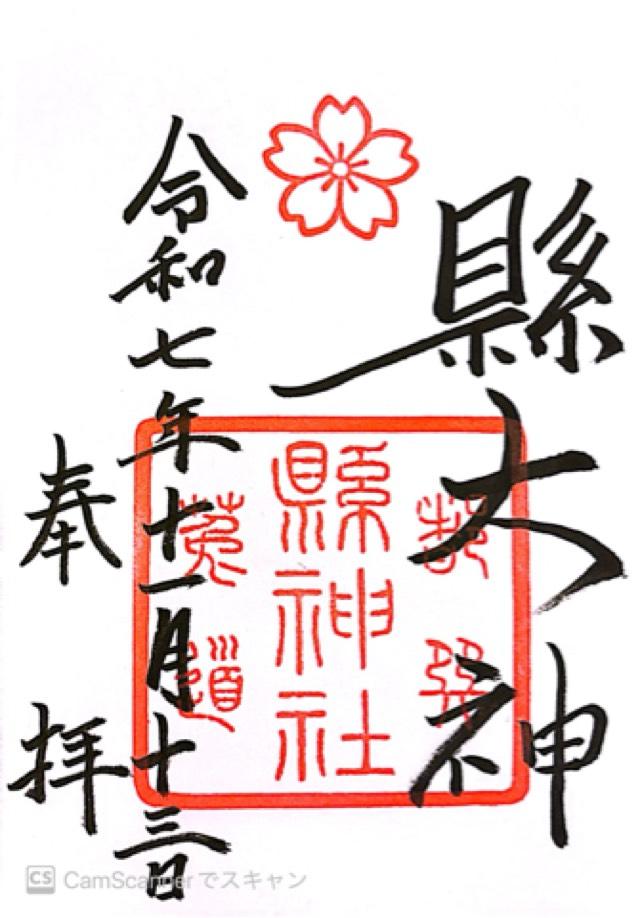 縣大神
都巽
縣神社
菟道
令和七年十一月十三日
奉拝
CS CamScanner でスキャン